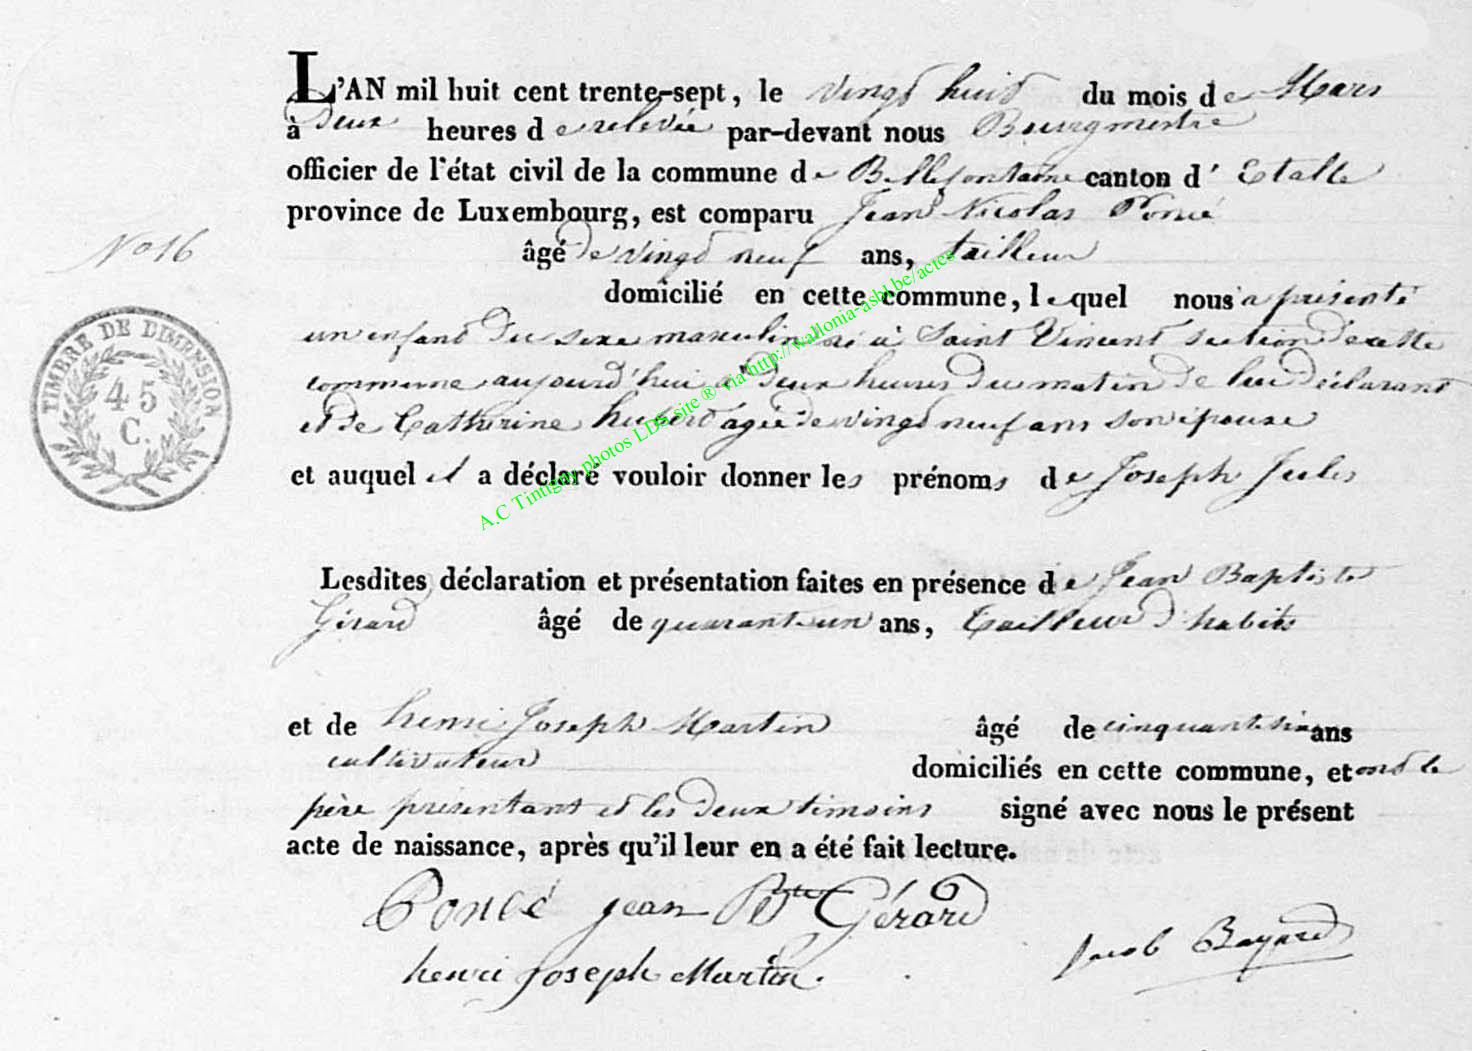 L'AN mil huit cent trente-sept, le vingt huit du mois de Mars
à deux heures de relevée par-devant nous Bourgmestre
officier de l'état civil de la commune de Bellefontaine canton d' Etalle
province de Luxembourg, est comparu Jean Nicolas Poncé
N° 16
âgé de vingt neuf ans, tailleur
domicilié en cette commune, lequel nous a présenté
un enfant du sexe masculin né à Saint Vincent section de cette
commune aujourd'hui à deux heures du matin de lui déclarant
et de Catherine hubert âgée de vingt neuf ans son épouse
et auquel il a déclaré vouloir donner les prénoms de Joseph Jules
TIMBRE DE DIMENSION
45
C.
A.C Tintigny photos LDS site ® via http://wallonia-asbl.be/actes
Lesdites déclaration et présentation faites en présence de Jean Baptiste
Gérard âgé de quarante un ans, tailleur d'habits
et de henri Joseph Martin âgé de cinquante six ans
cultivateur domiciliés en cette commune, et ont le
père présentant et les deux témoins signé avec nous le présent
acte de naissance, après qu'il leur en a été fait lecture.
Poncé jean Bte Gérard
henri Joseph Martin.
Jacob Bayard